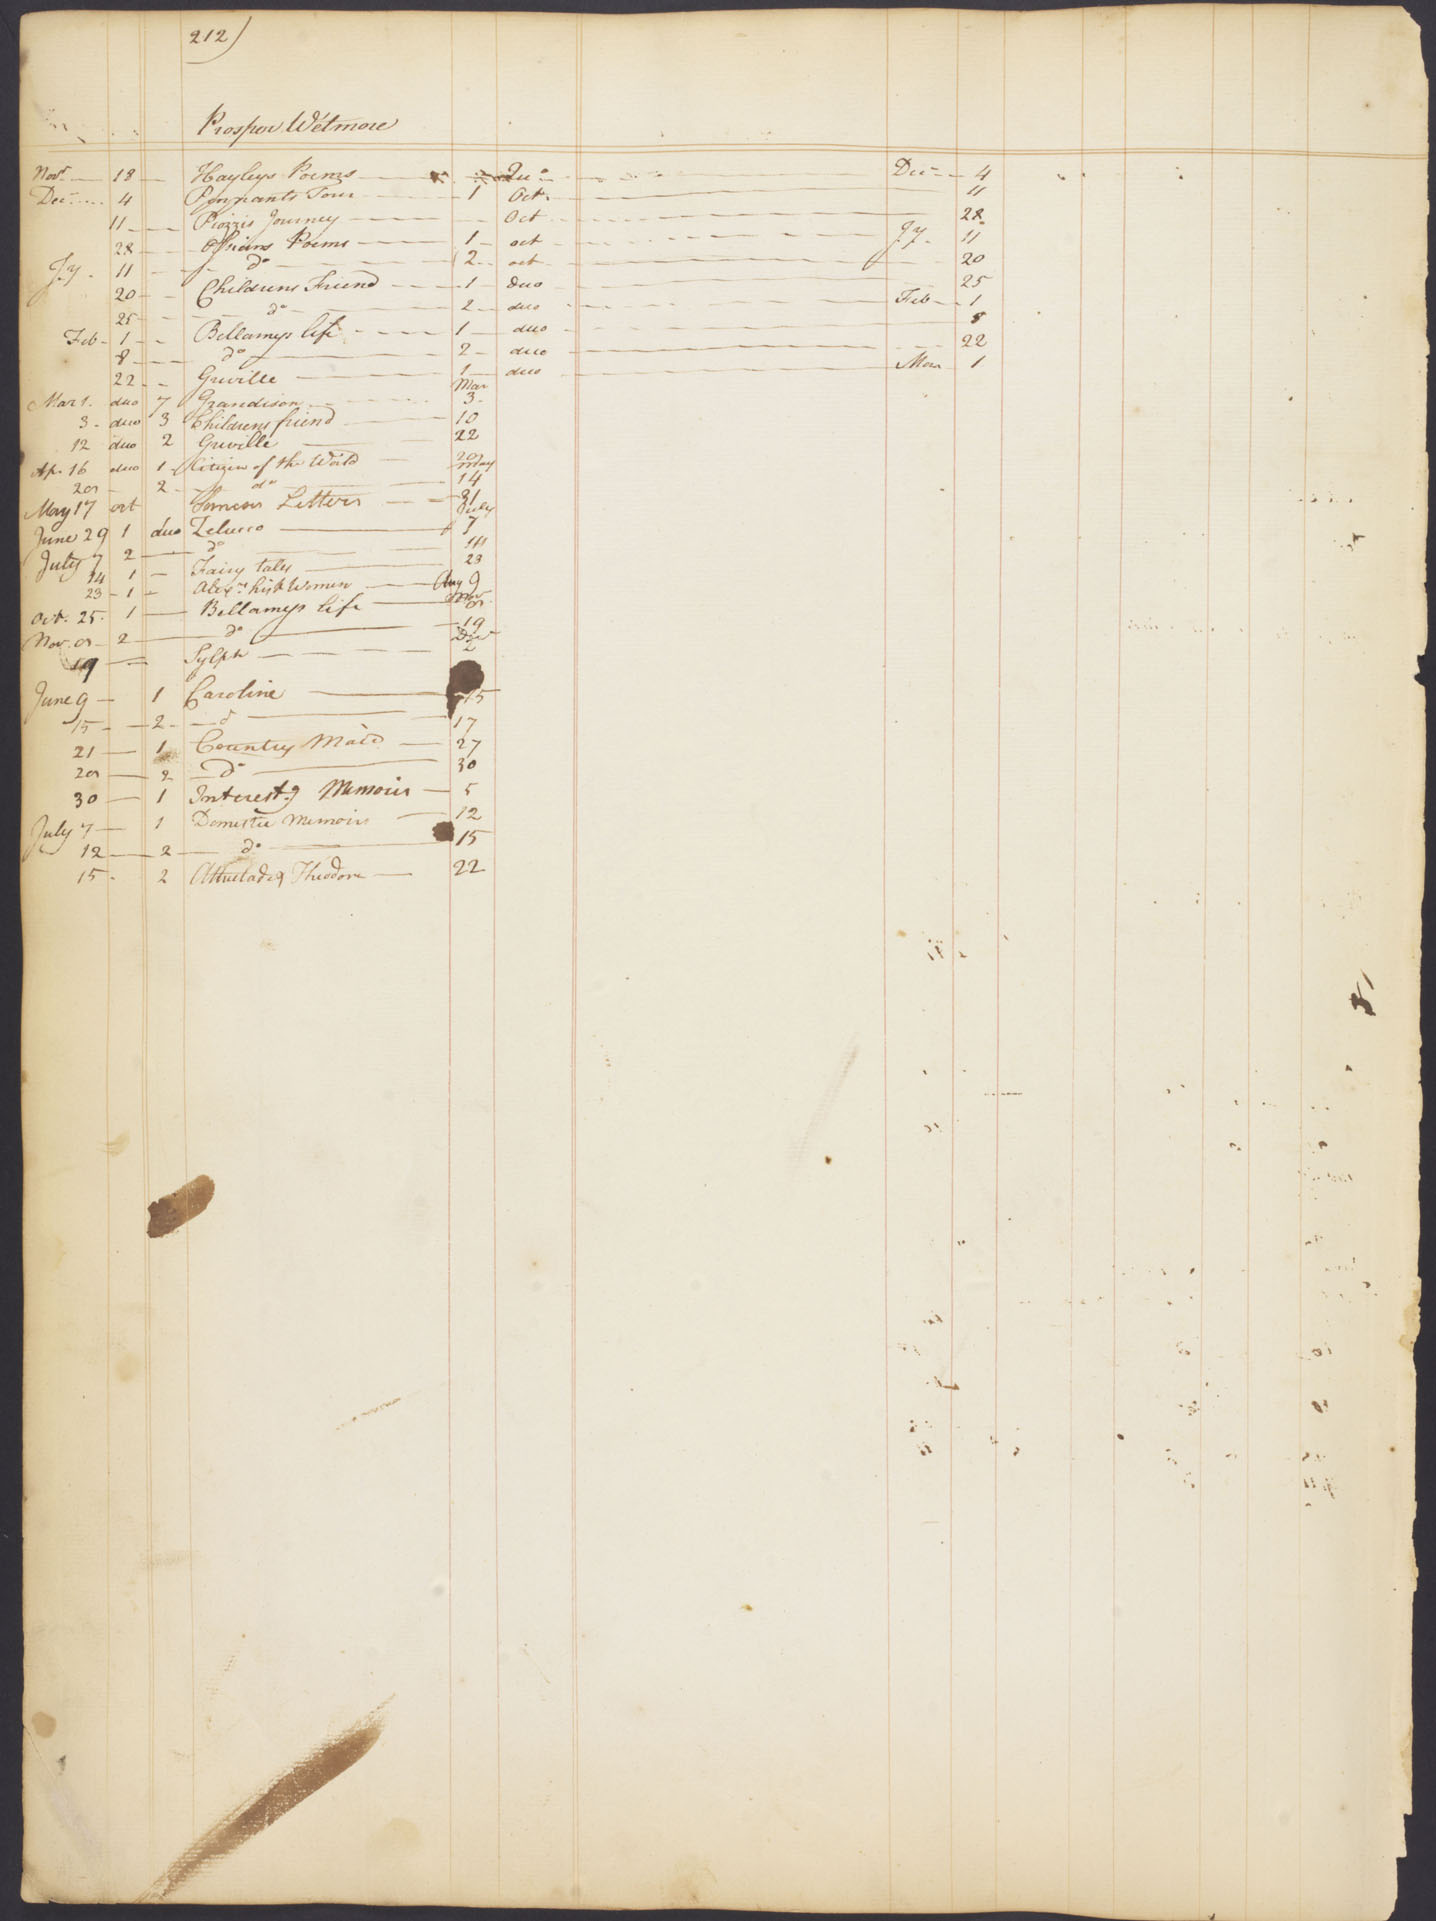 212)
Prosper Wetmore
Novr 18 Hayleys Poems 2 Duo Dec 4
Dec 4 Pennants Tour 1 Oct. 11
11 Piozzis Journey Oct 28
28 Ossians Poems 1 oct Jy. 11
Jy. 11 do 2 oct 20
20 Childrens Friend 1 duo 25
25 do 2 duo Feb 1
Feb 1 Bellamys life 1 duo 8
8 do 2 duo 22
22 Greville 1 duo Mar 1
Mar 1. duo 7 Grandison Mar 3
3 duo 3 Childrens friend 10
12 duo 2 Greville 22
Ap. 16 duo 1 Citizen of the World 20
20 2 do May 14
May 17 oct Letters 31
June 29 1 duo Zeluco July 7
July 7 2 do 14
14 1 Fairy tales 23
23 1 Alexrs hist Women Aug 9
Oct. 25. 1 Bellamys life Nov 8
Nov. 8 2 do 19
19 Sylph Dec 2
June 9 1 Caroline 15
15 2 d 17
21 1 Country Maid 27
28 2 do 30
30 1 Interestg Memoirs 5
July 7 1 Domestic Memoirs 12
12 2 do 15
15 2 & Theodore 22